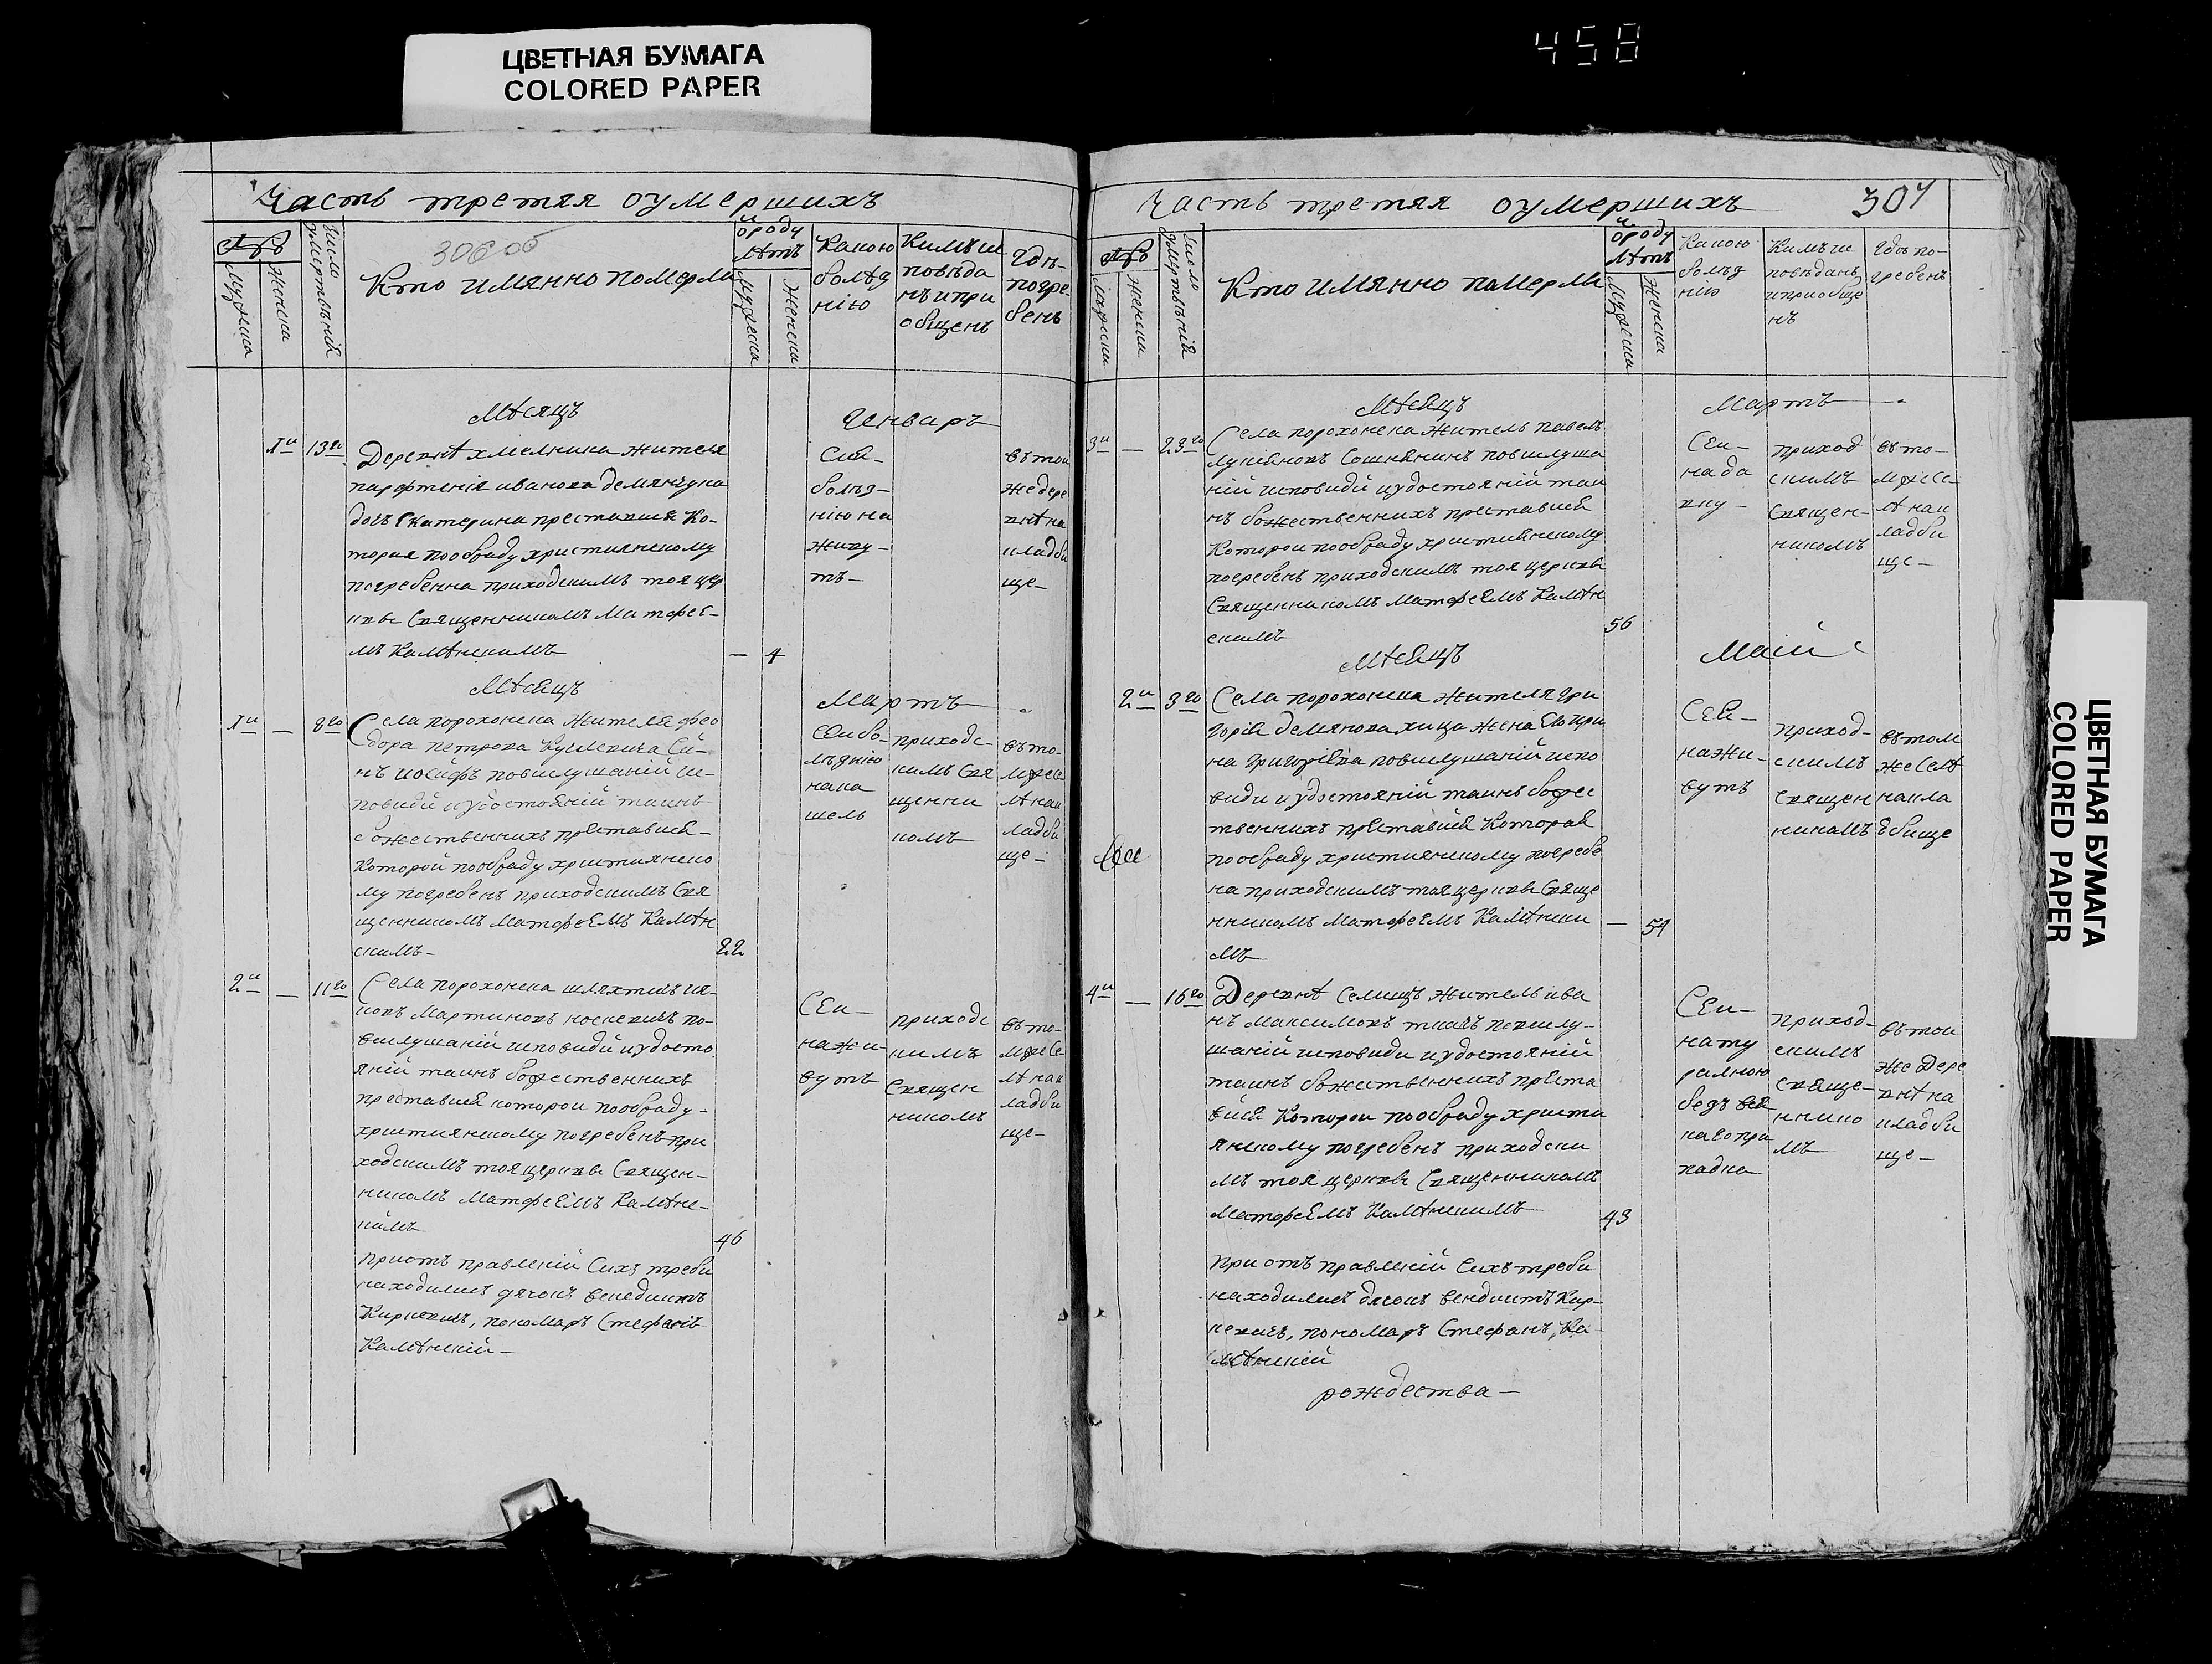 ЦВЕТНАЯ БУМАГА
COLORED PAPER
458
Часть третяя оумершихъ
306об
№
Мужеска
Женска
Число умертвій
Кто имянно померли
Коему роду лѣтъ
Мужеска
Женска
Какою
болѣз
нію
Кимъ ис
повѣда
нъ и при
общенъ
Гдѣ
погре
бенъ
Мѣсяцъ
Генваръ
1й 13го
Деревнѣ хмелника жителя
парфтенія иванова демянчука
дочъ Екатерина преставися Ко-
торая пообраду християнскому
погребенна приходскимъ тоя цер
кви Священникомъ Матфее-
мъ Камѣнскимъ
— 4
Сей-
болѣз-
нію на
живу-
тъ-
въ той
же дере
внѣ на
кладби
ще-
Мѣсяцъ
Мартъ
1й — 8го
Села порохонска Жителя фео
дора петрова Кучмевича Си-
нъ иосифъ повислушаній ис-
повиди иудостояній таинъ
божественнихъ преставися-
Которой пообраду християнско
му погребенъ приходскимъ Свя
щенникомъ МатфеЕмъ Камѣн
скимъ-
22
Сей бо-
лѣзнію
на ка
шель
приходс-
кимъ Свя
щенни
комъ
въ то-
мже се
лѣ на к
ладби
ще-
2й — 11го
Села порохонска шляхтичъ Ия-
ковъ Мартиновъ носкевичъ по-
вислушаній исповиди иудосто
яній таинъ божественнихъ
преставися которой пообраду-
християнскому погребенъ при
ходскимъ тоя церкви Священ-
никомъ МатфеЕмъ Камѣнс-
кимъ
46
Сей-
на жи-
вутъ
приходс
кимъ
Священ
никомъ
въ то-
мже Се
лѣ на к
ладби
ще-
приотъ правленій Сихъ треби
находилисъ дячокъ венедиктъ
Кирнкевичъ, пономаръ Стефанъ
Камѣнскій-
Часть третяя оумершихъ
307
№
Мужеска
Женска
Число умертвій
Кто имянно померли
Коему роду лѣтъ
Мужеска
Женска
Какою
болѣз
нію
Кимъ ис
повѣданъ
и приобще
нъ
Гдѣ по-
гребенъ
Мѣсяцъ
Мартъ
3й — 23го
Села порохонска Житель павелъ
лукияновъ Сошнянинъ повислуша
ній исповиди иудостояній таи
нъ божественнихъ преставися
Которой пообраду християнскому
погребенъ приходскимъ тоя церкви
Священникомъ МатфеЕмъ Камѣн
скимъ
56
Сей-
на да
вку-
приход
скимъ
Священ-
никомъ
въ то-
мже Се
лѣ на к
ладби
ще-
Мѣсяцъ
Маій
2й 3го
Села порохонска Жителя гри
горія демянова хица жена Его ири
на григоріева повислушаній испо
види иудостояній таинъ божес
твеннихъ преставися Которая
пообраду християнскому погребе
на приходскимъ тоя церкви Свяще
нникомъ МатфеЕмъ Камѣнски
мъ
— 54
Сей-
на жи-
вутъ
приход-
скимъ
Священ
никомъ
въ том
же Селѣ
на кла
дбище
4й — 16го
Деревнѣ Селищъ Житель ива
нъ Максимовъ ткачъ повислу-
шаній исповиди иудостояній
таинъ божественнихъ преста
вися Которой пообраду христи
янскому погребенъ приходски
мъ тоя церкви Священникомъ
МатфеЕмъ Камѣнскимъ
43
Сей-
нату
ралною
безъ вся
каго при
падка
приход-
скимъ
Свяще-
ннико
мъ
въ той
же Дере
внѣ на
кладби
ще-
При отъ правленій Сихъ треби
находилисъ дячокъ вендиктъ Кир-
нкевичъ, пономаръ Стефанъ, Ка-
мѣнскій
рождества-
ЦВЕТНАЯ БУМАГА
COLORED PAPER